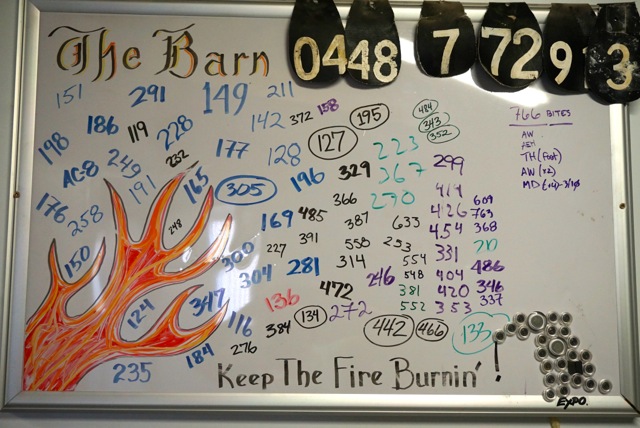 The Barn
0448 7 72 9 3
151 291 149 211
198 186 119 228 142 372 158 195 484
343
352
766 BITES
AW
TH (Foot)
AW (x2)
AC-8 249 232 177 128 127 223
176 258 191 165 305 196 329 367 299
248 366 270 419
169 485 387 633 426 609
763
150 300 227 391 558 253 454 368
304 281 314 554 331 211
124 347 136 472 246 548 404 486
116 384 134 272 381 420 346
552 353 337
235 184 276 442 466 133
Keep The Fire Burnin'!
EXPO.